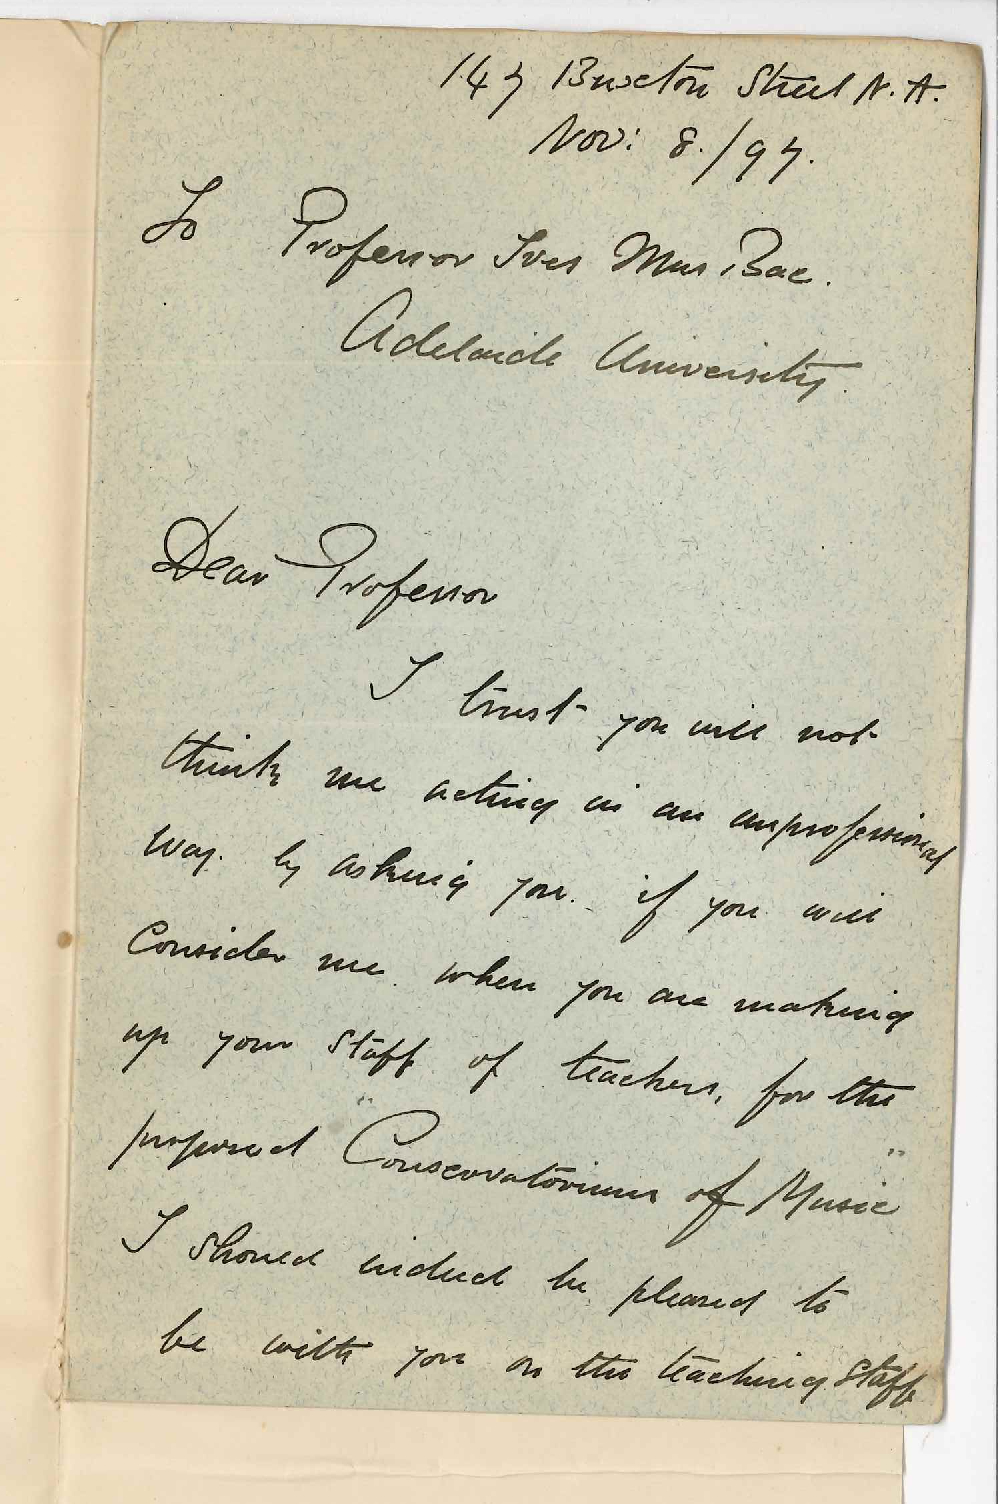 147 Buxton Street N.A.
Nov: 8./97.
To Professor Ives Mus. Bac.
Adelaide University.
Dear Professor
I trust you will not
think me acting in an unprofessional
way. by asking you. if you will
Consider me when you are making
up your Staff of teachers, for the
proposed "Conservatorium of Music"
I should indeed be pleased to
be with you on the teaching Staff